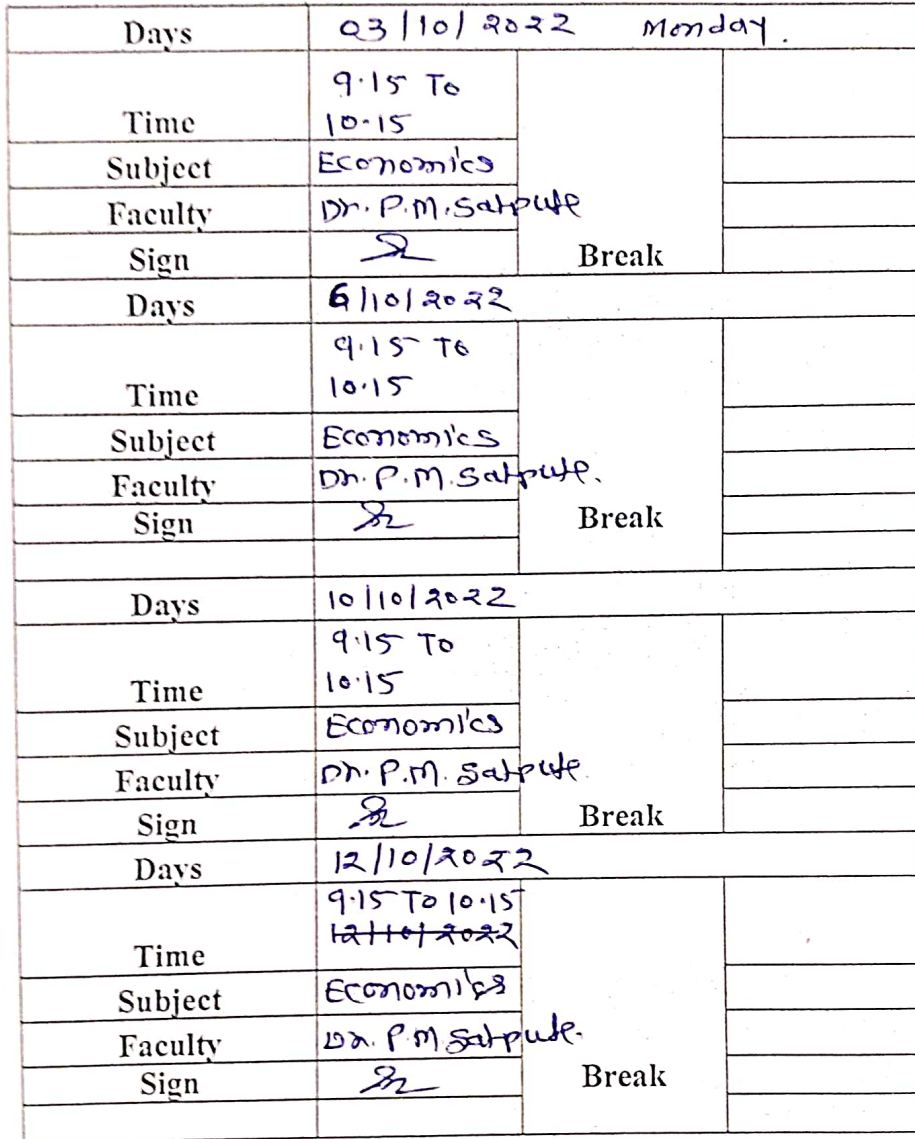 Days 03/10/2022 Monday.
9.15 To
Time 10.15
Subject Economics
Faculty Dr. P.M. Satpute
Sign Break
Days 6/10/2022
9.15 To
Time 10.15
Subject Economics
Faculty Dr. P.M. Satpute.
Sign Break
Days 10/10/2022
9.15 To
Time 10.15
Subject Economics
Faculty Dr. P.M. Satpute
Sign Break
Days 12/10/2022
9.15 To 10.15
Time 12/10/2022
Subject Economics
Faculty Dr. P.M Satpute.
Sign Break